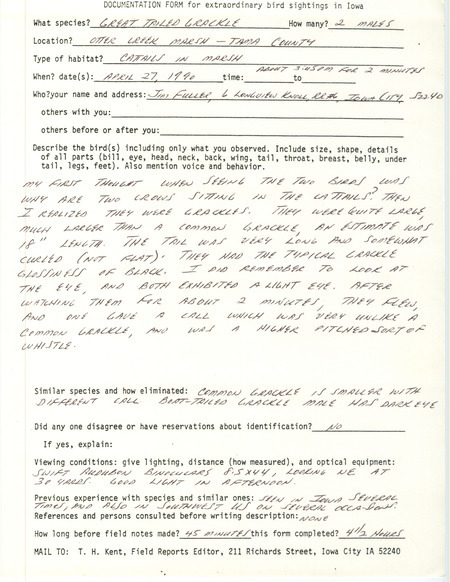 DOCUMENTATION FORM for extraordinary bird sightings in Iowa
What species? GREAT TAILED GRACKLE How many? 2 MALES
Location? OTTER CREEK MARSH - TAMA COUNTY
Type of habitat? CATTAILS IN MARSH
ABOUT 3:45 PM FOR 2 MINUTES
When? date(s): APRIL 27, 1990 time: to
Who? your name and address: JIM FULLER, 6 LONGVIEW KNOLL, RR#6, IOWA CITY, 52240
others with you:
others before or after you:
Describe the bird(s) including only what you observed. Include size, shape, details
of all parts (bill, eye, head, neck, back, wing, tail, throat, breast, belly, under
tail, legs, feet). Also mention voice and behavior.
MY FIRST THOUGHT WHEN SEEING THE TWO BIRDS WAS
WHY ARE TWO CROWS SITTING IN THE CATTAILS? THEN
I REALIZED THEY WERE GRACKLES. THEY WERE QUITE LARGE,
MUCH LARGER THAN A COMMON GRACKLE, AN ESTIMATE WAS
18" LENGTH. THE TAIL WAS VERY LONG AND SOMEWHAT
CURLED (NOT FLAT). THEY HAD THE TYPICAL GRACKLE
GLOSSINESS OF BLACK. I DID REMEMBER TO LOOK AT
THE EYE, AND BOTH EXHIBITED A LIGHT EYE. AFTER
WATCHING THEM FOR ABOUT 2 MINUTES, THEY FLEW,
AND ONE GAVE A CALL WHICH WAS VERY UNLIKE A
COMMON GRACKLE, AND WAS A HIGHER PITCHED SORT OF
WHISTLE.
Similar species and how eliminated: COMMON GRACKLE IS SMALLER WITH
DIFFERENT CALL. BOAT-TAILED GRACKLE MALE HAS DARK EYE
Did any one disagree or have reservations about identification? NO
If yes, explain:
Viewing conditions: give lighting, distance (how measured), and optical equipment:
SWIFT AUDUBON BINOCULARS 8.5X44, LOOKING NE AT
30 YARDS. GOOD LIGHT IN AFTERNOON.
Previous experience with species and similar ones: SEEN IN IOWA SEVERAL
TIMES, AND ALSO IN SOUTHWEST US ON SEVERAL OCCASIONS.
References and persons consulted before writing description: NONE
How long before field notes made? 45 MINUTES this form completed? 4 1/2 HOURS
MAIL TO: T. H. Kent, Field Reports Editor, 211 Richards Street, Iowa City IA 52240